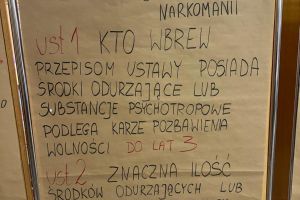 NARKOMANII
ust 1 KTO WBREW
PRZEPISOM USTAWY POSIADA
ŚRODKI ODURZAJĄCE LUB
SUBSTANCJE PSYCHOTROPOWE
PODLEGA KARZE POZBAWIENIA
WOLNOŚCI DO LAT 3
ust 2 ZNACZNA ILOŚĆ
ŚRODKÓW ODURZAJĄCYCH LUB